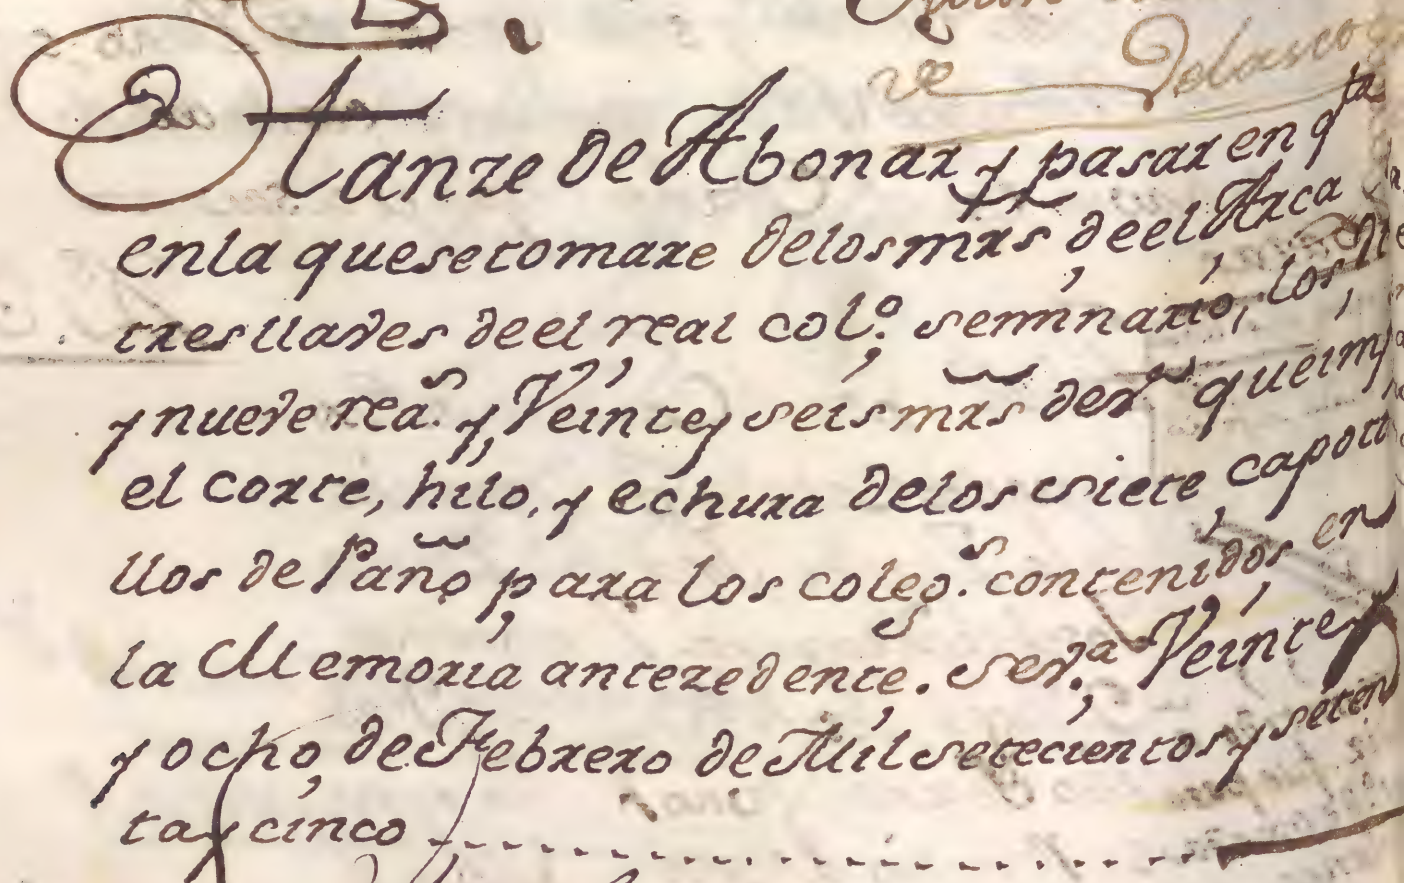 Hanze de Abonar y pasar en qta
en la que se tomare de los mrs, de el Arca
tres llaves de el real col.o seminario, los
y nueve rea.s y Veinte y seis mrs de v.n que imp
el corte, hilo, y echura de los siete capoti
llos de Paño para los coleg.s contenidos en
la Memoria antezedente. Sev.a Veinte y
y ocho de Febrero de Mil setecientos y seten
ta y cinco